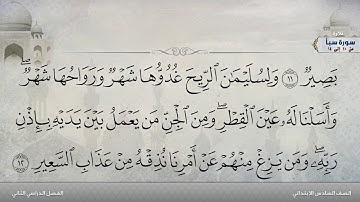 تلاوة
سورة سبأ
من ١٠ إلى ١٤
بَصِيرٌ ۝١١ وَلِسُلَيْمَٰنَ ٱلرِّيحَ غُدُوُّهَا شَهْرٌ وَرَوَاحُهَا شَهْرٌ ۖ
وَأَسَلْنَا لَهُۥ عَيْنَ ٱلْقِطْرِ ۖ وَمِنَ ٱلْجِنِّ مَن يَعْمَلُ بَيْنَ يَدَيْهِ بِإِذْنِ
رَبِّهِۦ ۖ وَمَن يَزِغْ مِنْهُمْ عَنْ أَمْرِنَا نُذِقْهُ مِنْ عَذَابِ ٱلسَّعِيرِ ۝١٢
الصف السادس الابتدائي
الفصل الدراسي الثاني